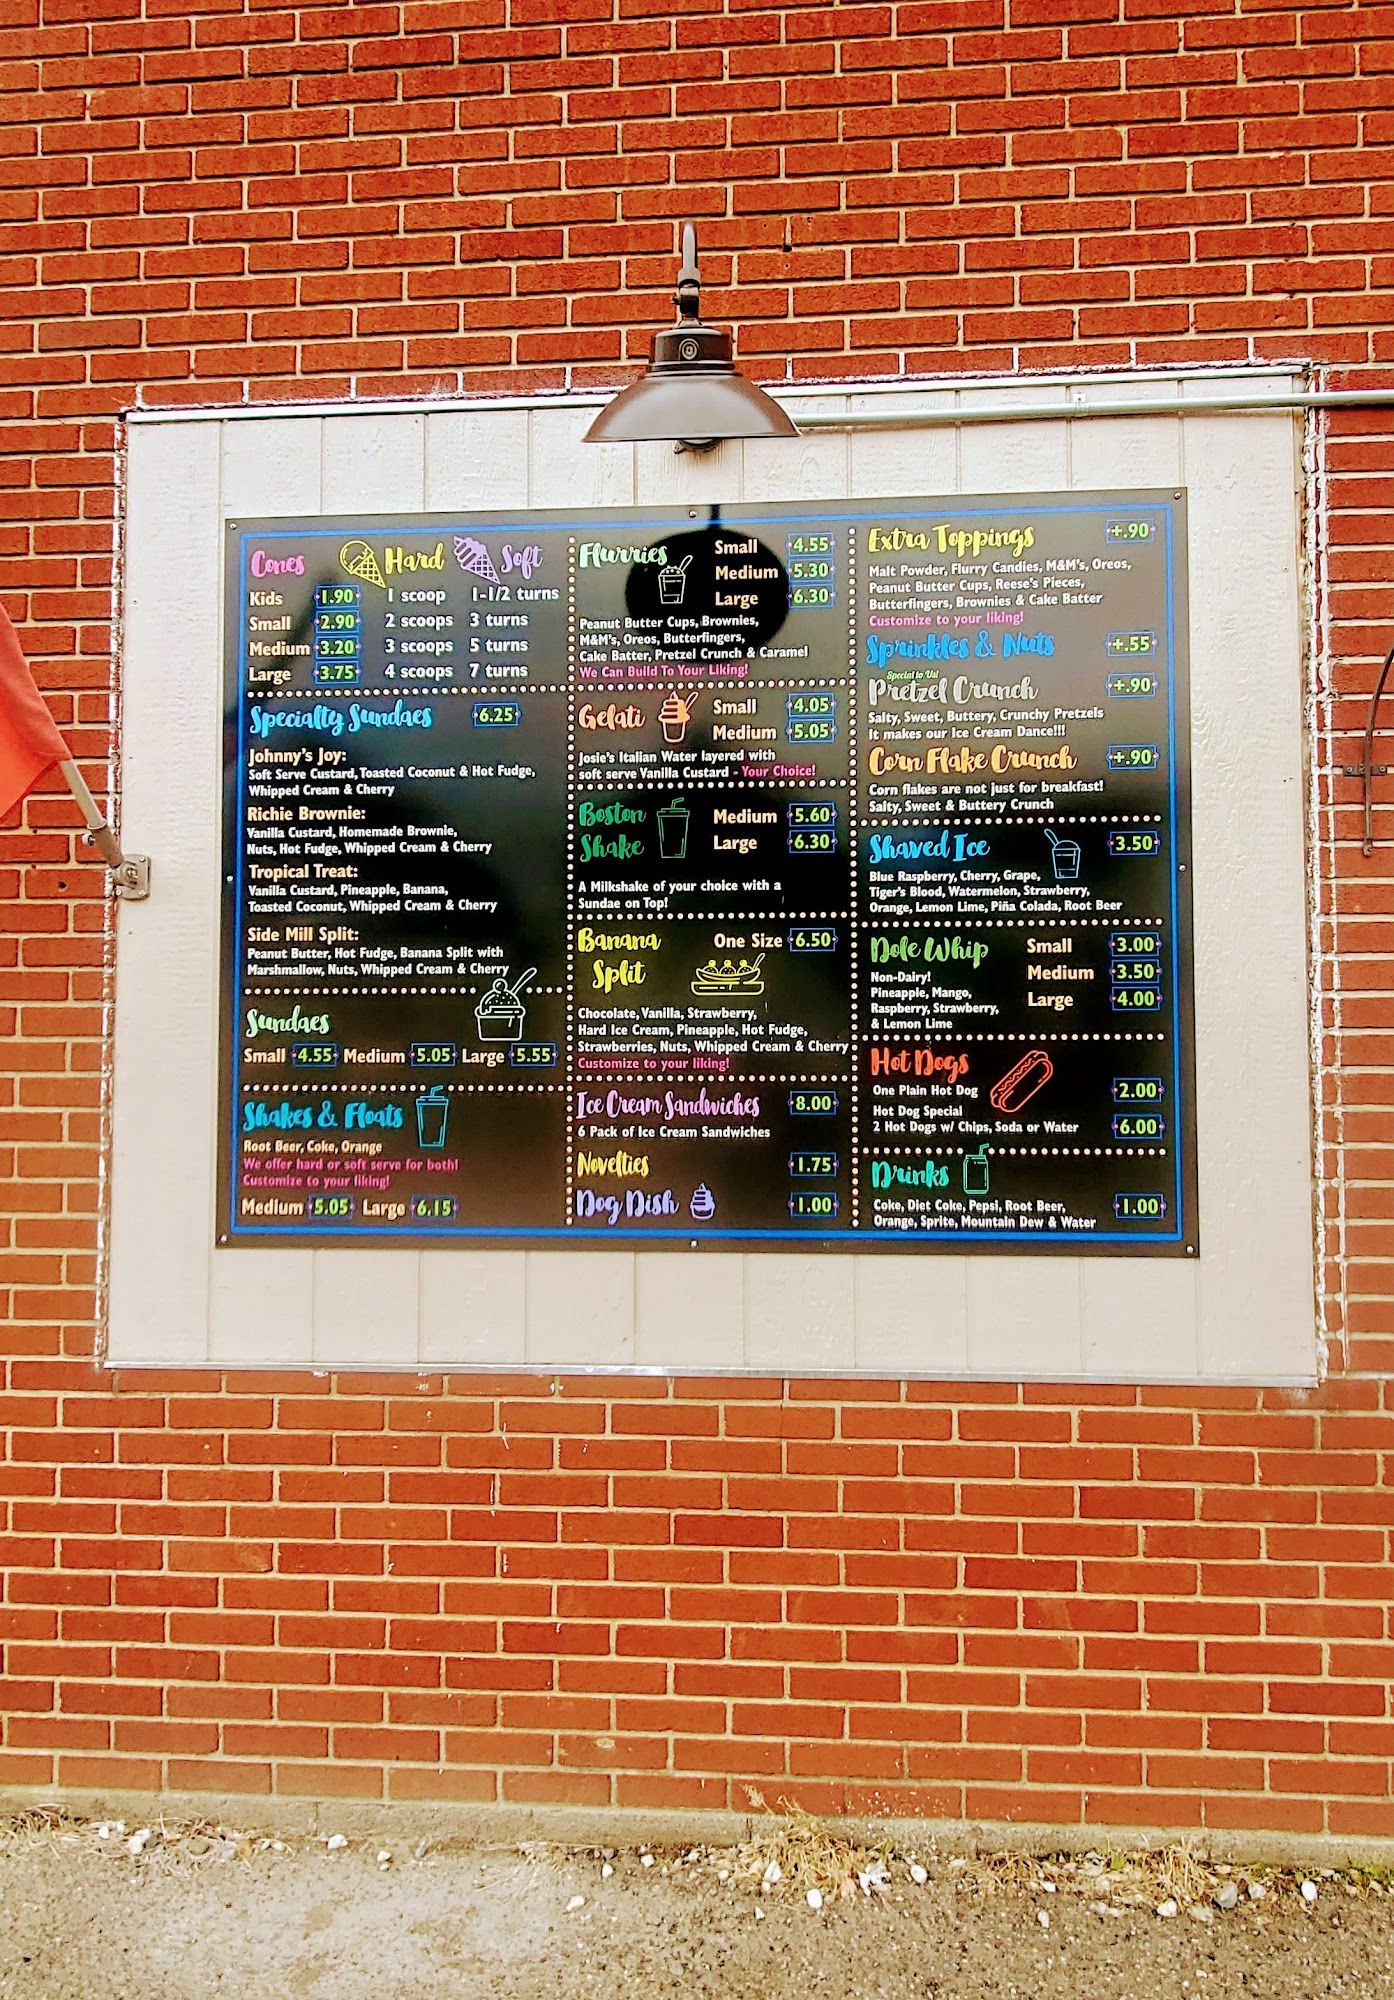 Cones Hard Soft
Kids 1.90 1 scoop 1-1/2 turns
Small 2.90 2 scoops 3 turns
Medium 3.20 3 scoops 5 turns
Large 3.75 4 scoops 7 turns
Specialty Sundaes 6.25
Johnny's Joy:
Soft Serve Custard, Toasted Coconut & Hot Fudge,
Whipped Cream & Cherry
Richie Brownie:
Vanilla Custard, Homemade Brownie,
Nuts, Hot Fudge, Whipped Cream & Cherry
Tropical Treat:
Vanilla Custard, Pineapple, Banana,
Toasted Coconut, Whipped Cream & Cherry
Side Mill Split:
Peanut Butter, Hot Fudge, Banana Split with
Marshmallow, Nuts, Whipped Cream & Cherry
Sundaes
Small 4.55 Medium 5.05 Large 5.55
Shakes & Floats
Root Beer, Coke, Orange
We offer hard or soft serve for both!
Customize to your liking!
Medium 5.05 Large 6.15
Flurries
Small 4.55
Medium 5.30
Large 6.30
Peanut Butter Cups, Brownies,
M&M's, Oreos, Butterfingers,
Cake Batter, Pretzel Crunch & Caramel
We Can Build To Your Liking!
Gelati
Small 4.05
Medium 5.05
Josie's Italian Water layered with
soft serve Vanilla Custard - Your Choice!
Boston
Shake
Medium 5.60
Large 6.30
A Milkshake of your choice with a
Sundae on Top!
Banana
Split
One Size 6.50
Chocolate, Vanilla, Strawberry,
Hard Ice Cream, Pineapple, Hot Fudge,
Strawberries, Nuts, Whipped Cream & Cherry
Customize to your liking!
Ice Cream Sandwiches 8.00
6 Pack of Ice Cream Sandwiches
Novelties 1.75
Dog Dish 1.00
Extra Toppings +.90
Malt Powder, Flurry Candies, M&M's, Oreos,
Peanut Butter Cups, Reese's Pieces,
Butterfingers, Brownies & Cake Batter
Customize to your liking!
Sprinkles & Nuts +.55
Special to Us!
Pretzel Crunch +.90
Salty, Sweet, Buttery, Crunchy Pretzels
It makes our Ice Cream Dance!!!
Corn Flake Crunch +.90
Corn flakes are not just for breakfast!
Salty, Sweet & Buttery Crunch
Shaved Ice 3.50
Blue Raspberry, Cherry, Grape,
Tiger's Blood, Watermelon, Strawberry,
Orange, Lemon Lime, Piña Colada, Root Beer
Dole Whip
Small 3.00
Medium 3.50
Large 4.00
Non-Dairy!
Pineapple, Mango,
Raspberry, Strawberry,
& Lemon Lime
Hot Dogs
One Plain Hot Dog 2.00
Hot Dog Special
2 Hot Dogs w/ Chips, Soda or Water 6.00
Drinks
Coke, Diet Coke, Pepsi, Root Beer,
Orange, Sprite, Mountain Dew & Water 1.00